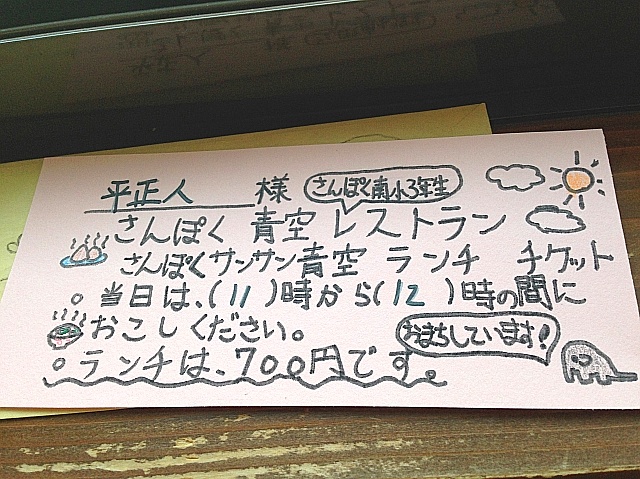 平正人 様 さんぽく南小3年生
さんぽく 青空 レストラン
さんぽくサンサン青空 ランチ チケット
○当日は、(11)時から(12)時の間に
おこしください。
おまちしています!
○ランチは、700円です。